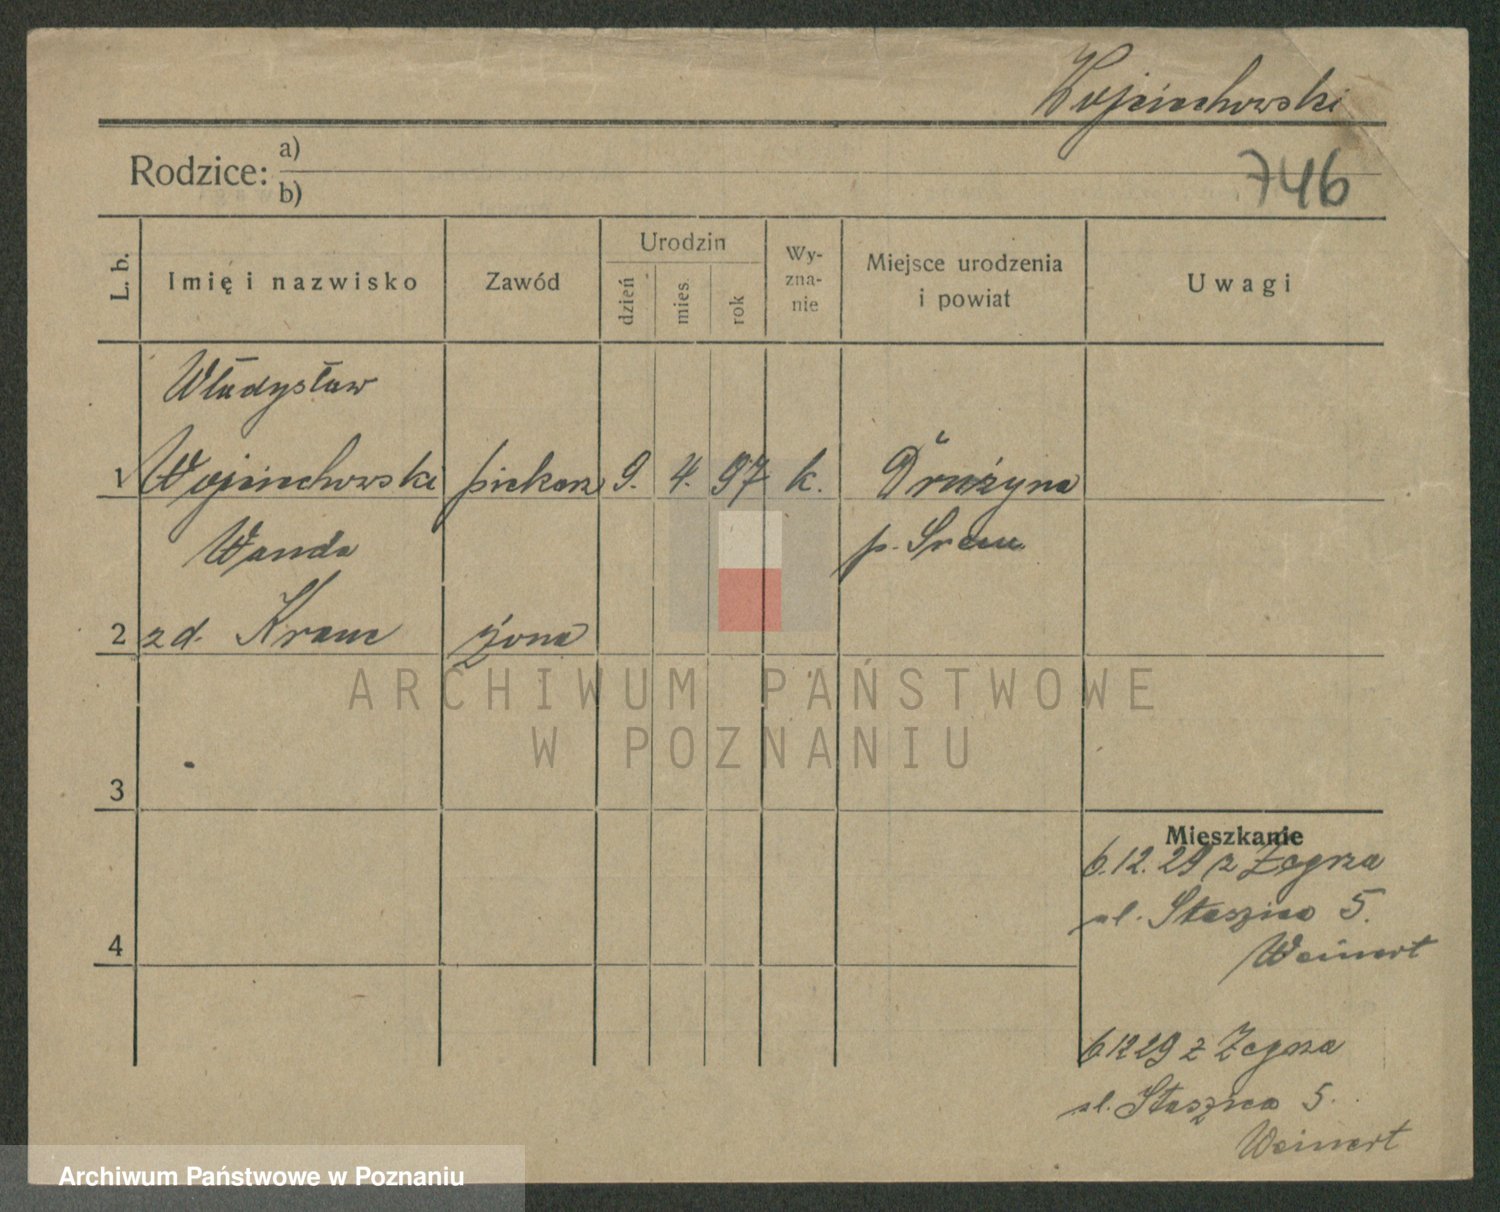 Wojciechowski
746
Rodzice: a)
b)
L. b.
Imię i nazwisko
Zawód
Urodzin
dzień
mies.
rok
Wy-
zna-
nie
Miejsce urodzenia
i powiat
Uwagi
Władysław
1 Wojciechowski piekarz 9. 4. 97 k. Drużyna
Wanda p. Śrem
2 zd. żona
3
4
Mieszkanie
6.12.29 z Zegrza
ul. Staszica 5.
Weinert
6 12 29 z Zegrza
ul. Staszica 5.
Weinert
ARCHIWUM PAŃSTWOWE
W POZNANIU
Archiwum Państwowe w Poznaniu